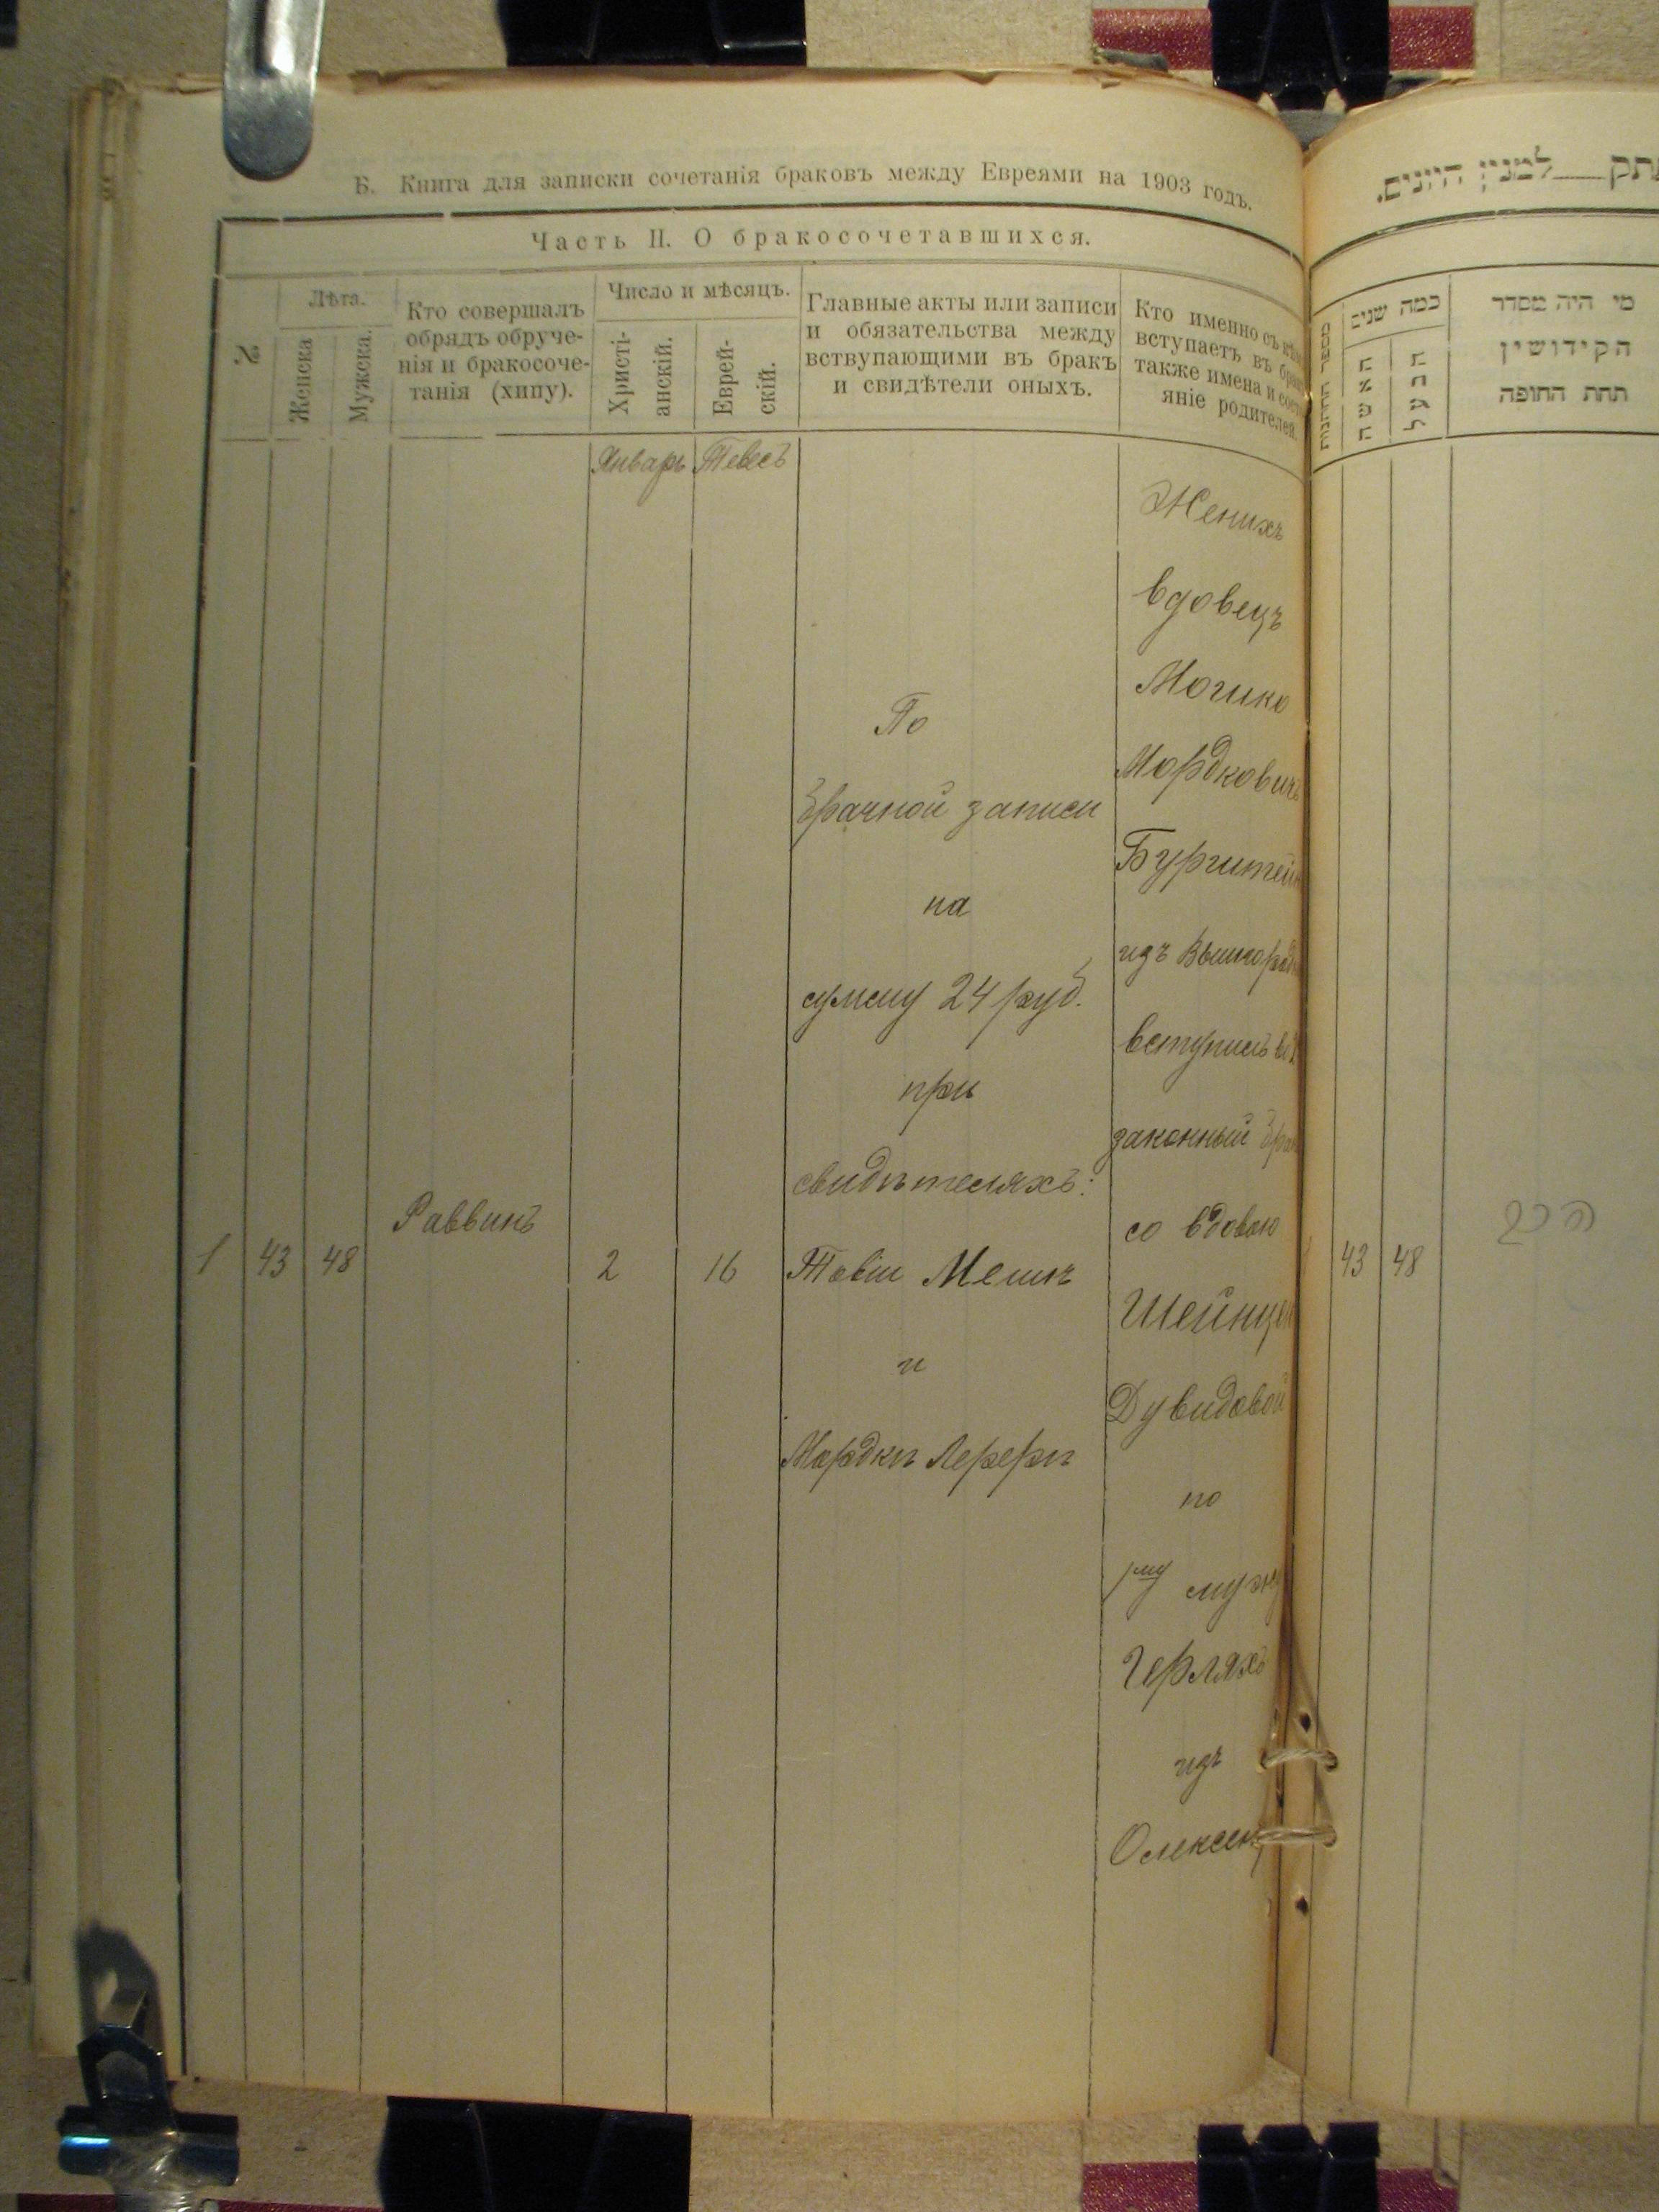 Б. Книга для записки сочетанія браковъ между Евреями на 1903 годъ.
Часть II. О бракосочетавшихся.
№
Лѣта.
Женска
Мужска.
Кто совершалъ
обрядъ обруче-
нія и бракосоче-
танія (хипу).
Число и мѣсяцъ.
Христі-
анскій.
Еврей-
скій.
Главные акты или записи
и обязательства между
вствупающими въ бракъ
и свидѣтели оныхъ.
Кто именно съ кѣмъ
вступаетъ въ бракъ
также имена и состо
яніе родителей.
Январь Тевесъ
1 43 48 Раввинъ 2 16
По
брачной записи
на
сумму 24 руб.
при
свидѣтеляхъ:
Товіи Мешъ
и
Мордкѣ Лерерѣ
Женихъ
вдовецъ
Мошко
Мордковичъ
Бурштейн
изъ
вступилъ въ
законный брак
со вдовою
Шейнцею
Дувидовой
по
1му мужу
Герляхъ
изъ
Олексин
למנין היונים.
כמה שנים
האשה
הבעל
מי היה מסדר
הקידושין
תחת החופה
43 48
הרב